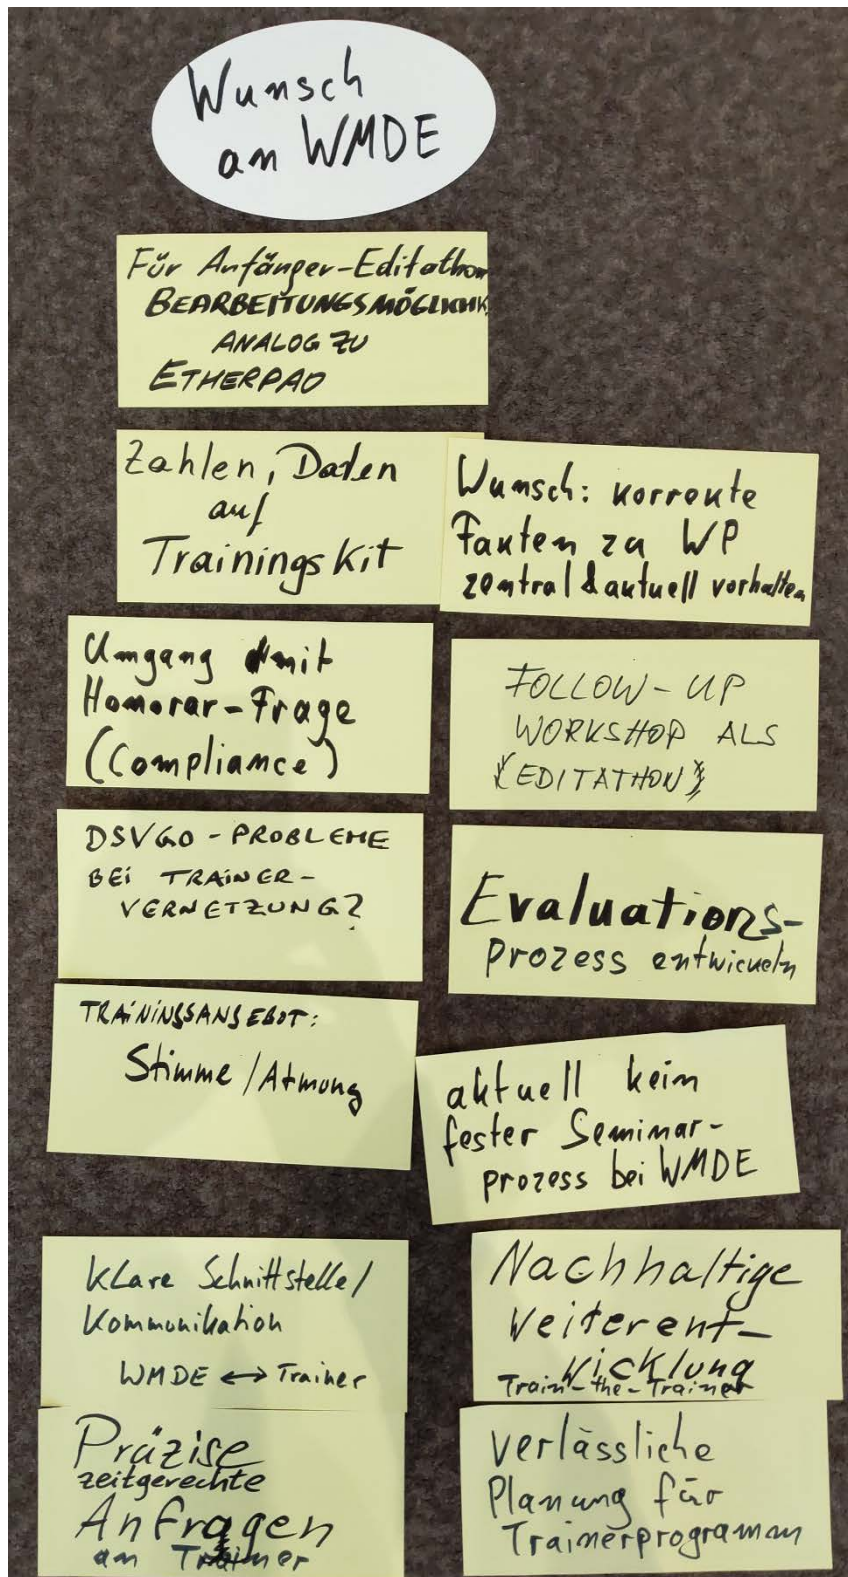 Wunsch
an WMDE
Für Anfänger-Editathon
BEARBEITUNGSMÖGLICHK.
ANALOG ZU
ETHERPAD
Zahlen, Daten
auf
Trainingskit
Wunsch: korrekte
Fakten zu WP
zentral & aktuell vorhalten
Umgang mit
Honorar-Frage
(Compliance)
FOLLOW-UP
WORKSHOP ALS
(EDITATHON)
DSVGO-PROBLEME
BEI TRAINER-
VERNETZUNG?
Evaluations-
prozess entwickeln
TRAININGSANGEBOT:
Stimme/Atmung
aktuell kein
fester Seminar-
prozess bei WMDE
Klare Schnittstelle/
Kommunikation
WMDE ↔ Trainer
Nachhaltige
Weiterent-
wicklung
Train-the-Trainer
Präzise
zeitgerechte
Anfragen
an Trainer
Verlässliche
Planung für
Trainerprogramm